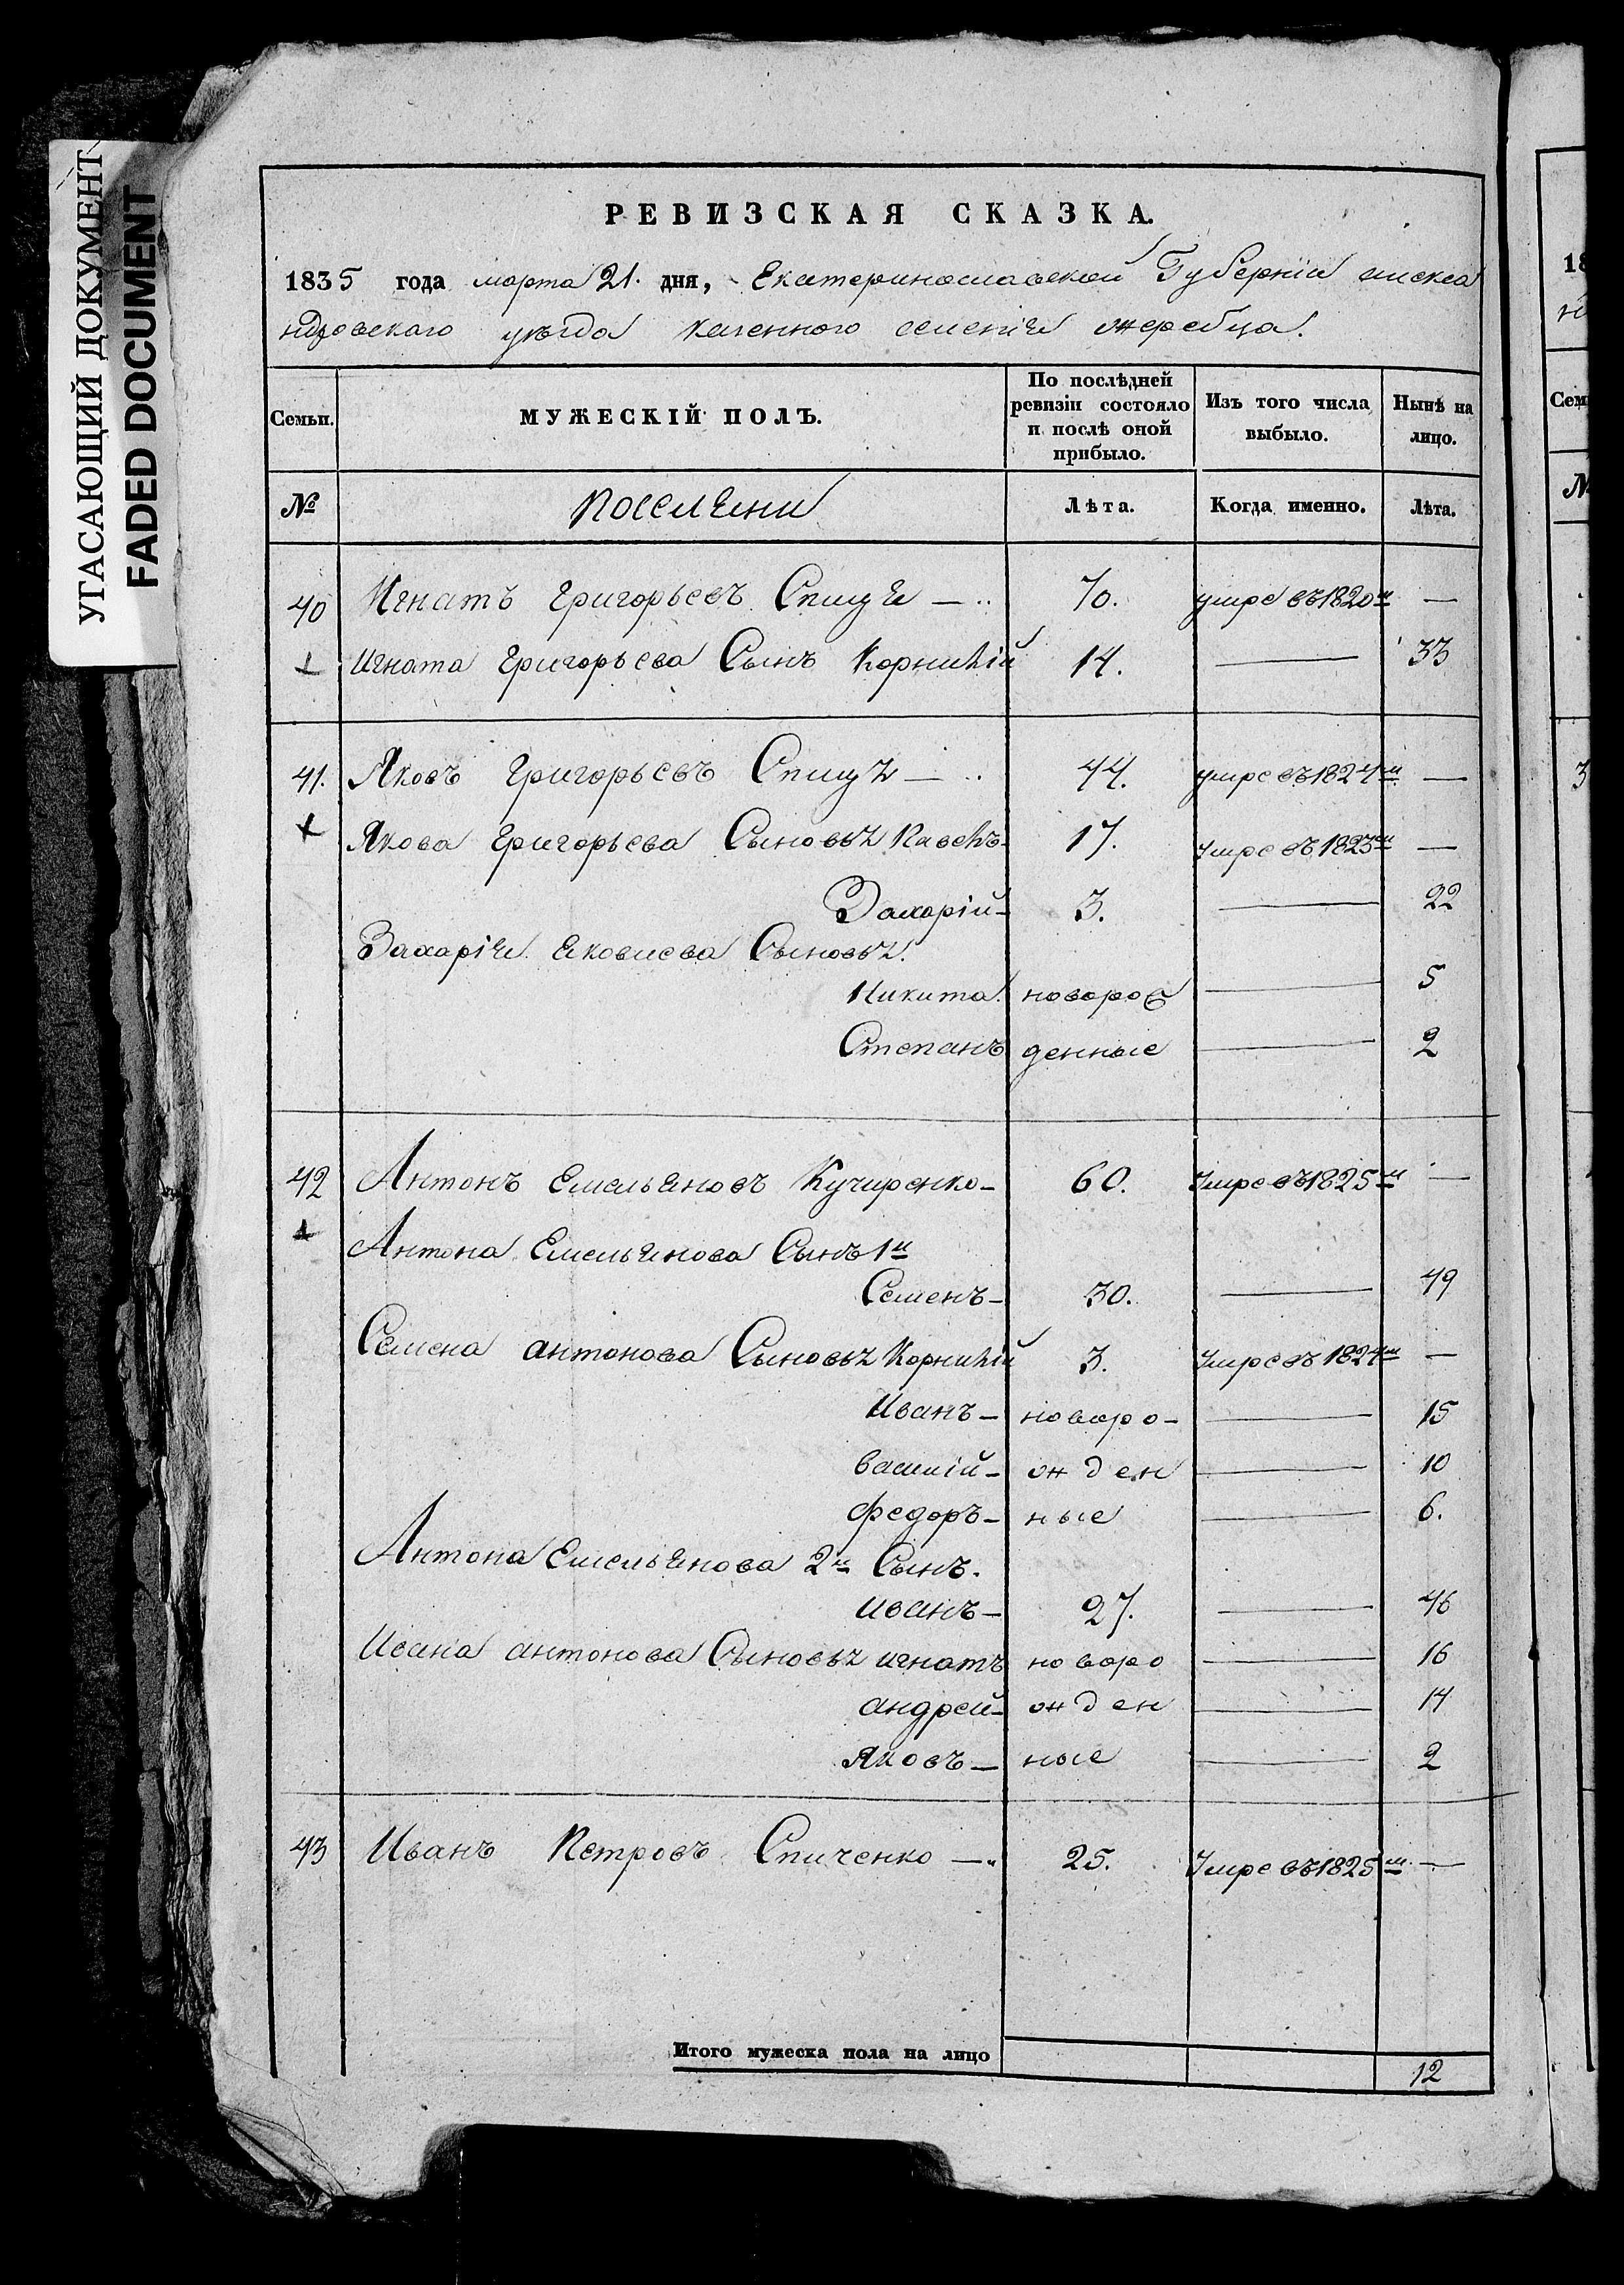 УГАСАЮЩИЙ ДОКУМЕНТ
FADED DOCUMENT
РЕВИЗСКАЯ СКАЗКА.
1835 года марта 21. дня, Екатеринославской Губерніи алекса
ндровскаго уѣзда казенного селенія жеребца.
Семьи. МУЖЕСКІЙ ПОЛЪ. По послѣдней ревизіи состояло и послѣ оной прибыло. Изъ того числа выбыло. Нынѣ на лицо.
№ поселяни Лѣта. Когда именно. Лѣта.
40 Игнатъ григорьевъ Спица — 70. умре въ 1820м —
+ Игната григорьева Сынъ Корнилій 14. — 33
41. Яковъ григорьевъ Спица — 44. умре въ 1824м —
+ Якова григорьева Сыновья Павелъ- 17. умре въ 1823м —
Захарій- 3. — 22
Захарія яковлева Сыновья.
Никита. новорож — 5
Степанъ денные — 2
42 Антонъ Емельяновъ Кучиренко- 60. умре въ 1825м —
+ Антона Емельянова Сынъ 1й
Семенъ- 30. — 49
Семена антонова Сыновья Корнилій 3. умре въ 1824м —
Иванъ- новоро- — 15
василій- жден — 10
федоръ- ные — 6.
Антона Емельянова 2й Сынъ.
иванъ- 27. — 46
Ивана антонова Сыновья игнатъ новоро — 16
андрей- жден — 14
яковъ- ные — 2
43 Иванъ Петровъ Спиченко — 25. умре въ 1825м —
Итого мужеска пола на лицо 12
18
Сем
№
3